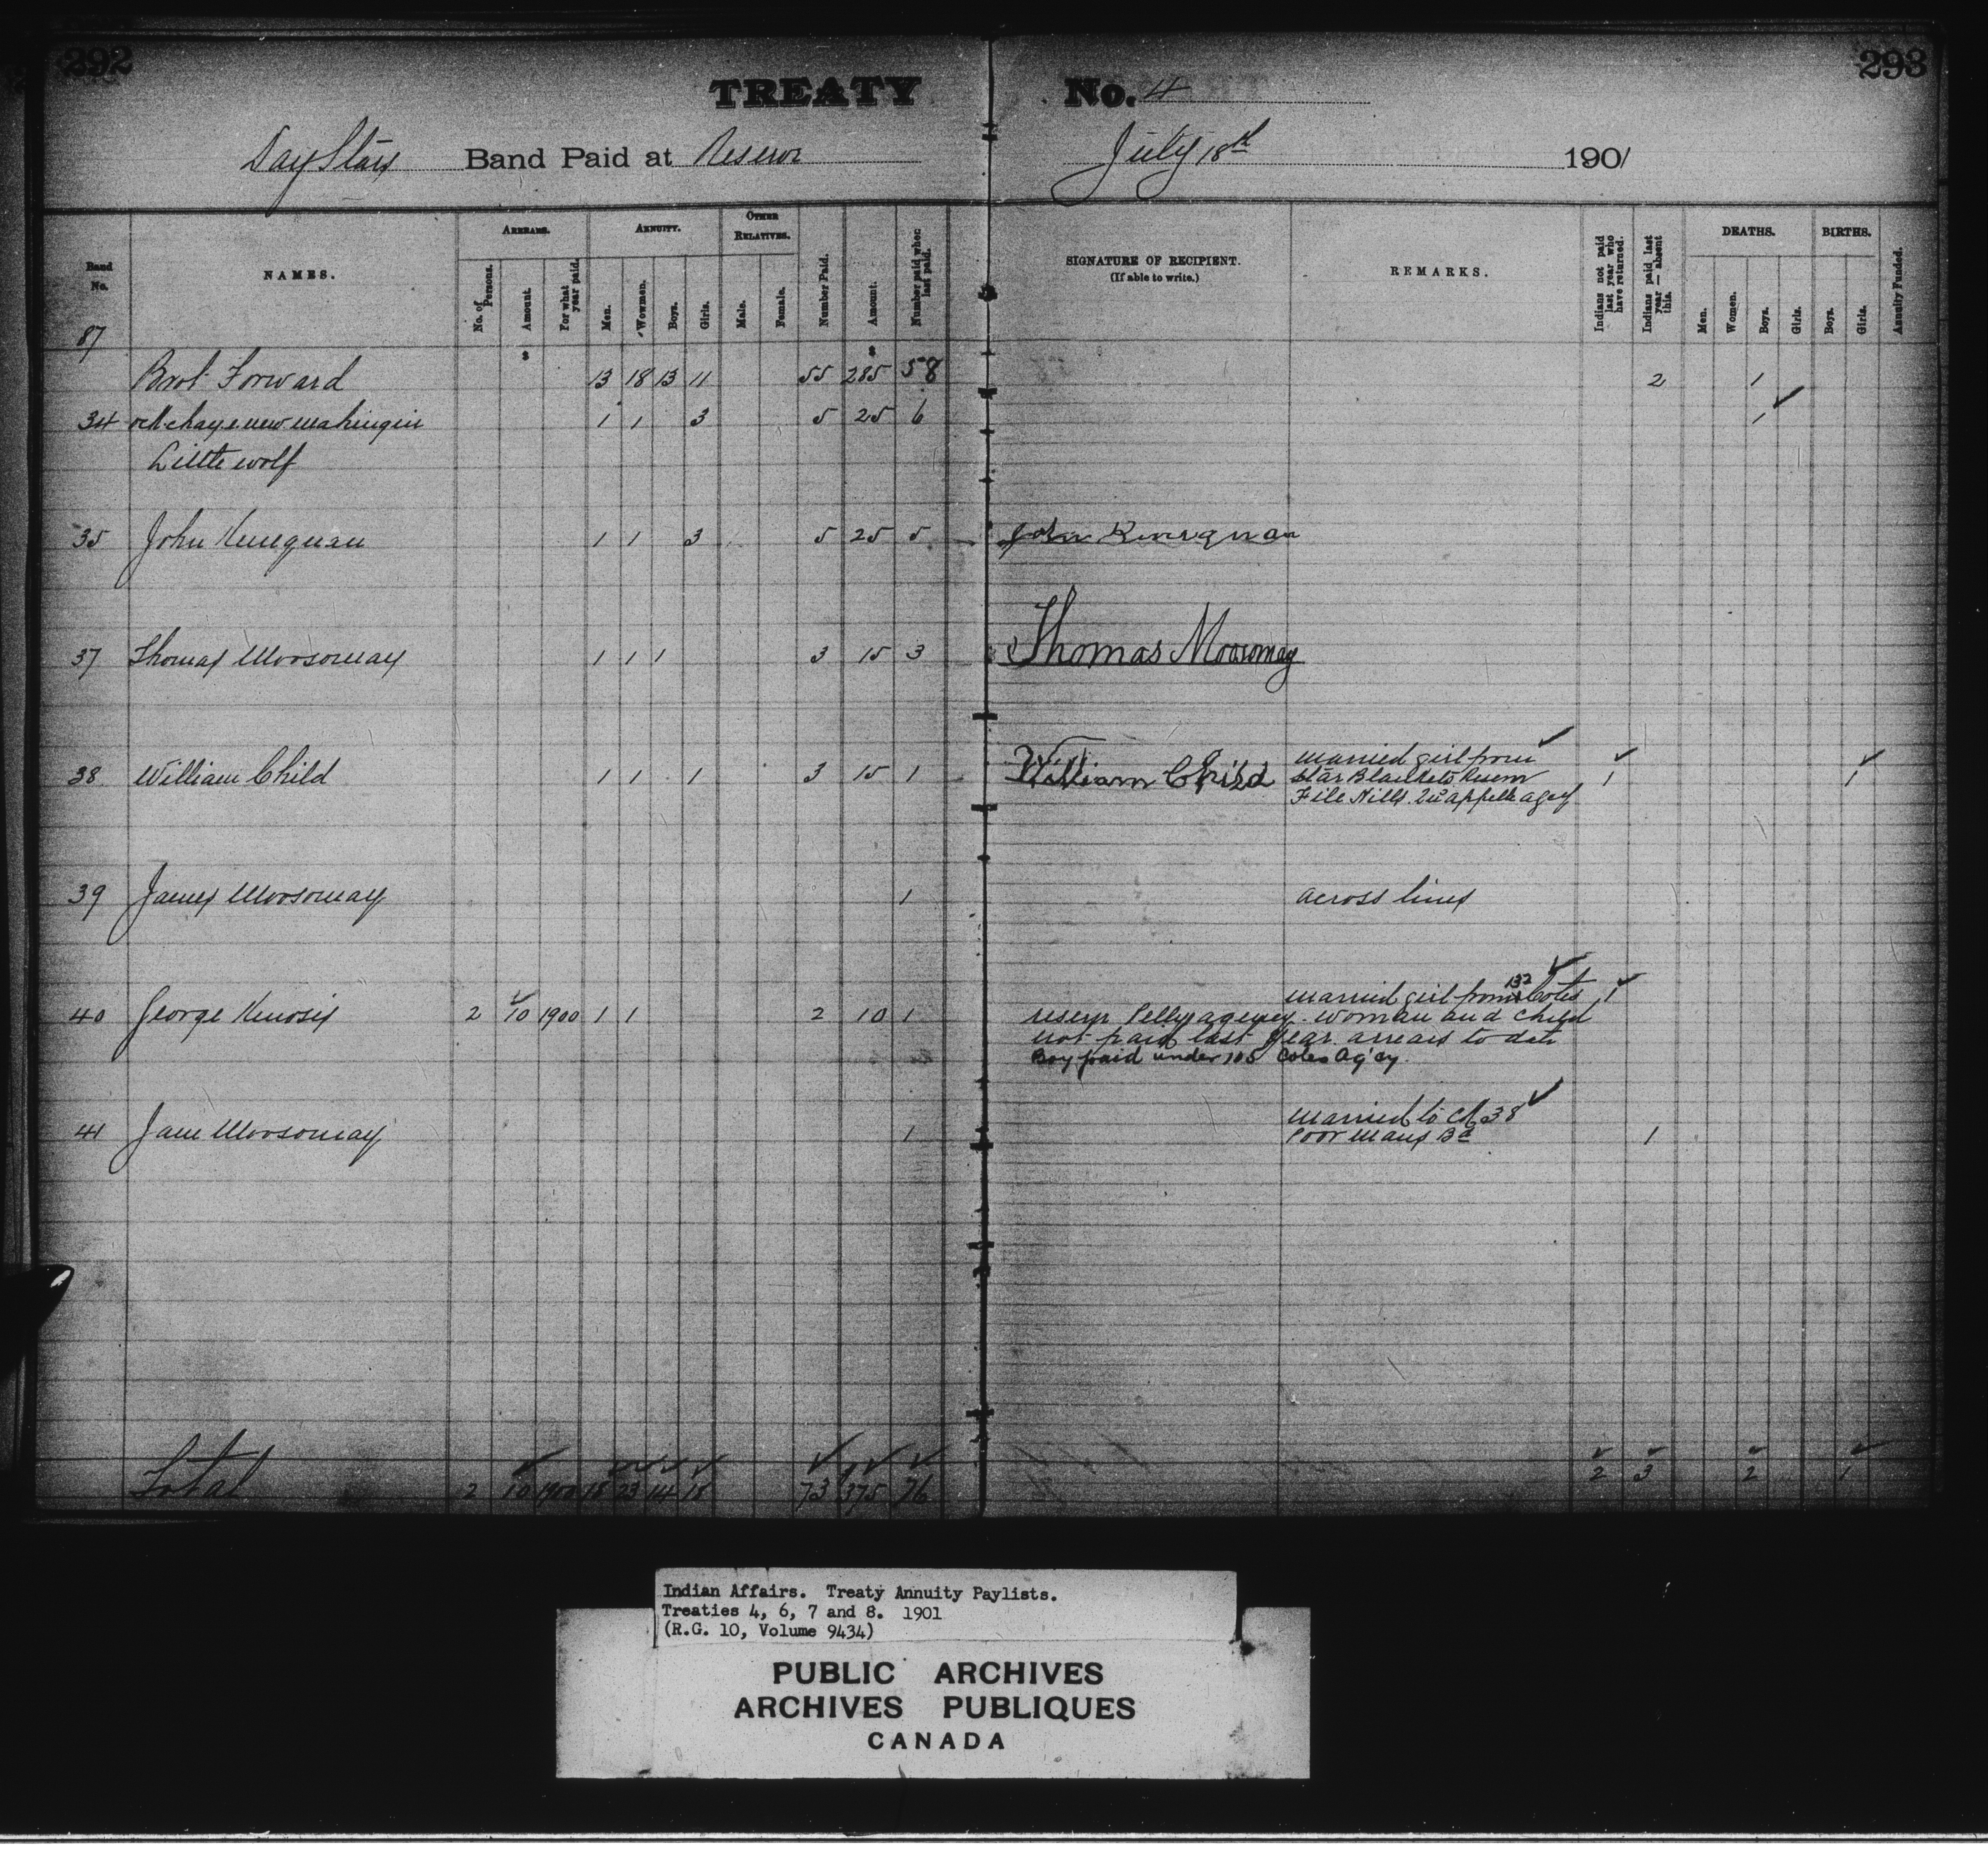 292 293
TREATY No. 4
Day Stars Band Paid at Reserve July 18th 1901
Band No.
NAMES.
ARREARS.
No. of Persons.
Amount.
For what year paid.
ANNUITY.
Men.
Women.
Boys.
Girls.
OTHER RELATIVES.
Male.
Female.
Number Paid.
Amount.
Number paid when last paid.
SIGNATURE OF RECIPIENT.
(If able to write.)
REMARKS.
Indians not paid last year who have returned.
Indians paid last year — absent this.
DEATHS.
Men.
Women.
Boys.
Girls.
BIRTHS.
Boys.
Girls.
Annuity Funded.
87
$ $
Brot Forward 13 18 13 11 55 285 58 2 1
34 1 1 3 5 25 6 1
Little wolf
35 John 1 1 3 5 25 5 John
37 Thomas Moosomay 1 1 1 3 15 3 Thomas Moosomay
married girl from
38 William Child 1 1 1 3 15 1 William Child Star Blankets Reserve 1 1
File Hills. Qu'appelle agcy
39 James Moosomay 1 across lines
married girl from 132 Cotes 1
40 George 2 10 1900 1 1 2 10 1 reserve Pelly agency. woman and child
not paid last year. arrears to date
Boy paid under 105 Cotes Ag'cy.
married to No 38
41 Jane Moosomay 1 Poor Mans Bd 1
Total 2 10 1900 18 23 14 18 73 375 76 2 3 2 1
Indian Affairs. Treaty Annuity Paylists.
Treaties 4, 6, 7 and 8. 1901
(R.G. 10, Volume 9434)
PUBLIC ARCHIVES
ARCHIVES PUBLIQUES
CANADA